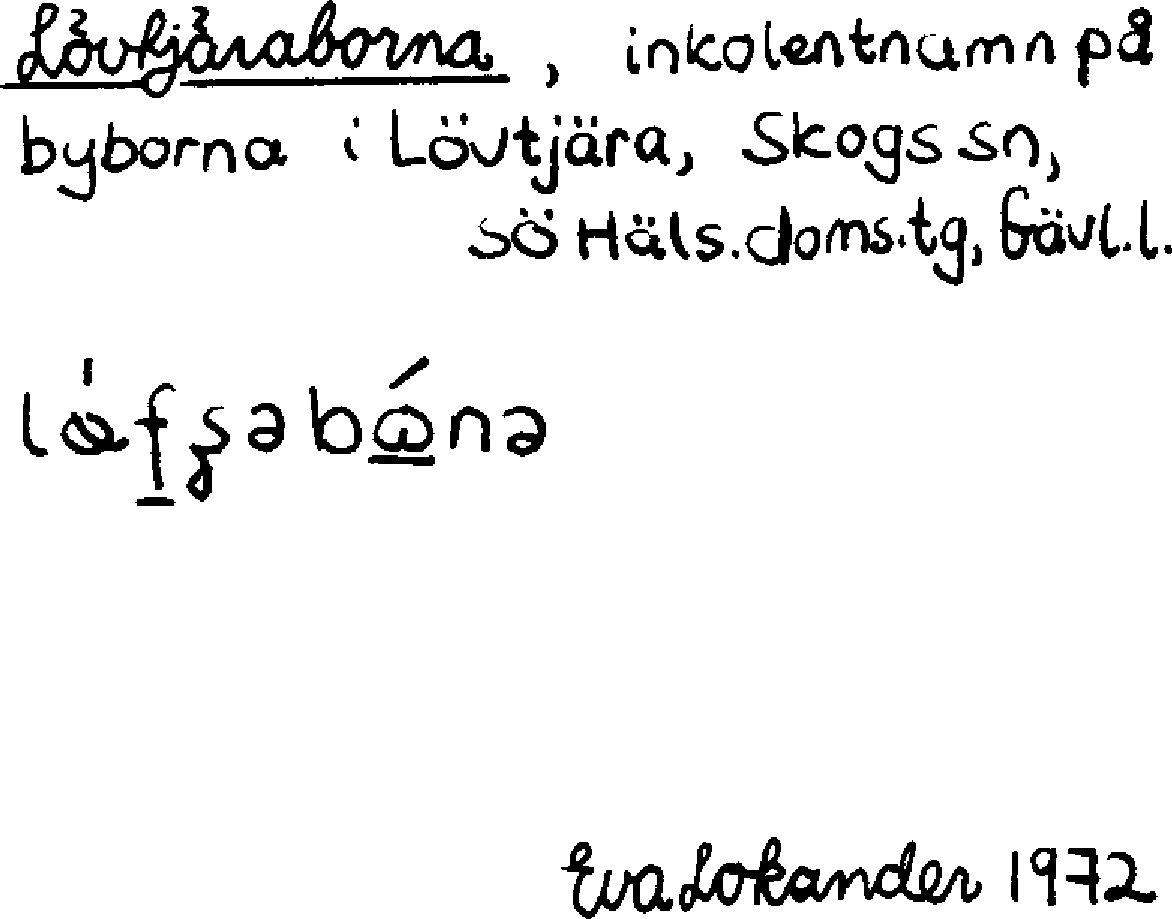 Lövtjäraborna, inkolentnamn på
byborna i Lövtjära, Skogs sn,
sö Häls. doms.tg, Gävl.l.
Eva Lokander 1972